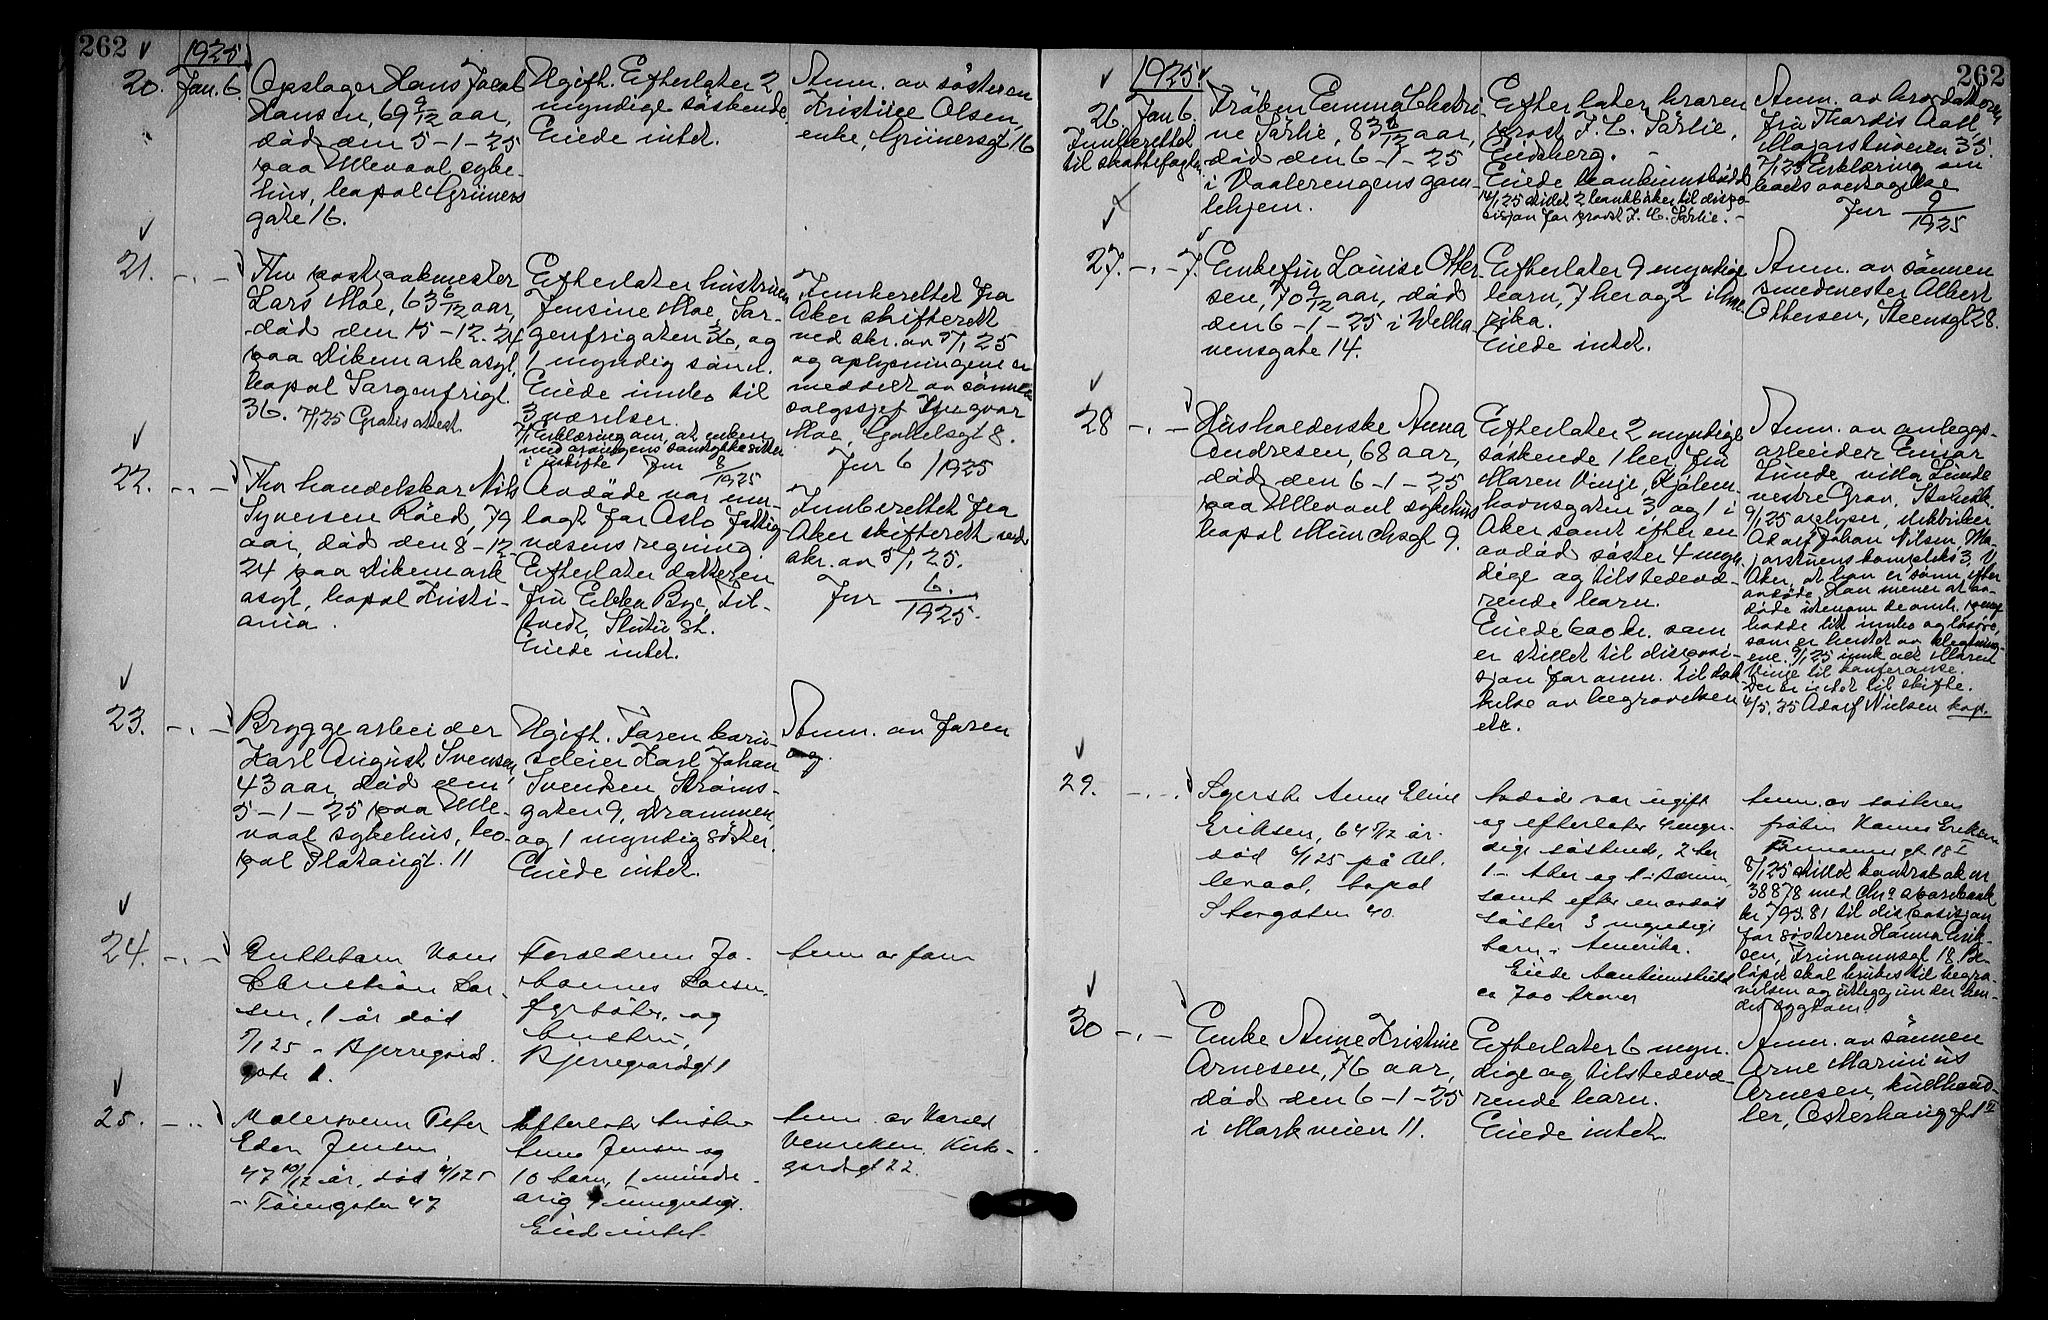 262
1925
20. Jan. 6.
Opslager Hans Jacob
Hansen, 69 9/12 aar,
död den 5-1-25
paa Ullevaal syke-
hus, bopæl Grüners
gate 16.
Ugift. Efterlater 2
myndige söskende.
Eiede intet.
Anm. av sösteren
Kristine Olsen,
enke, Grünersgt 16
21. -„-
Fhv. postpakmester
Lars Moe, 63 6/12 aar,
död den 15-12-24
paa Dikemark asyl,
bopæl Sorgenfrigt.
36. 7/1 25 Gratis attest.
Efterlater hustruen
Jensine Moe, Sor-
genfrigaten 36, og
1 myndig sönn.
Eiede innbo til
3 værelser.
7/1 Erklæring om, at enken
med arvingens samtykke sitter
i uskifte Jnr 8/1925
Innberettet fra
Aker skifterett
ved skr. av 5/1 25
og oplysningene er
meddelt av sönnen
salgssjef Ingvar
Moe, Gabelsgt 8.
Jnr 6/1925
22. -„-
Fhv handelskar Nils
Syversen Röed, 79
aar, död den 8-12-
24 paa Dikemark
asyl, bopæl Kristi-
ania.
Avdöde var inn-
lagt for Oslo fattig-
væsens regning.
Efterlater datteren
fru Ebba Bye,
Skutu st.
Eiede intet.
Innberettet fra
Aker skifterett ved
skr. av 5/1 25.
Jnr 6./1925.
23. -„-
Bryggearbeider
Karl August Svensen,
43 aar, död den
5-1-25 paa Ulle-
vaal sykehus, bo-
pæl Platougt. 11
Ugift. Faren baru-
seleier Karl Johan
Svendsen Ströms-
gaten 9, Drammen,
og 1 myndig söster.
Eiede intet.
Anm. av faren
24. -„-
Guttebarn Hans
Christian Lar-
sen, 1 år död
5/1 25 - Bjerregård.
gate 1.
Foreldrene Jo-
hannes Larsen,
fyrböter, og
hustru,
Bjerregaardsgt 1
Anm av faren
25. -„-
Malersvenn Peter
Edon Jensen,
47 10/12 år, död 4/1 25
- Töiengaten 47
Efterlater hustru
Anna Jensen og
10 barn, 1 mindre-
årig 9 myndige.
Eied intet.
Anm. av Harald
Henriksen, Kirke-
gardsgt 22.
262
1925
26. Jan 6.
Innberettet
til skattefogden
Fröken Emma Chatri-
ne Sörlie, 83 6/12 aar,
död den 6-1-25
i Vaalerengens gam-
lehjem.
Efterlater broren
prost J. C. Sörlie,
Eidsberg.
Eiede bankinnskudd
14/1 25 stillet 2 bankböker til dispo-
sisjon for prost J. C. Sörlie. -
Anm. av brordatteren
fru Thordis Aall,
Majorstuveien 35.
7/1 25 Erklæring om
boets overtagelse
Jnr 9/1925
27. -„- 7.
Enkefru Louise Otter-
sen, 70 9/12 aar, död
den 6-1-25 i Welha-
vensgate 14.
Efterlater 9 myndige
barn, 7 her og 2 i Ame-
rika.
Eiede intet.
Anm. av sönnen
smedmester Albert
Ottersen, Steensgt 28.
28 -„-
Husholderske Anna
Andresen, 68 aar,
död den 6-1-25
paa Ullevaal sykehus
bopæl Munchsgt 9.
Efterlater 2 myndige
söskende 1 her fru
Maren Vinje, Kjölen-
havnsgaten 3 og 1 i
Aker samt efter en
avdöd söster 4 myn-
dige og tilstedevæ-
rende barn.
Eiede 600 kr. som
er stillet til disposi-
sjon for anm. til dek-
kelse av begravelsen
etc.
Anm. av anleggs-
arbeider Einar
Lunde, villa Lunde
vestre Grav, Stabekk.
9/1 25 oplyser, elektriker
Adolf Johan Nilsen, Ma-
jorstuens kompleks 3, V.
Aker, at han er sönn efter
avdöde. Han mener at av-
döde utenom de anm. penge
hadde litt innbo og lösöre,
som er hentet av slegtning-
ene. 9/1 25 innk alt Maren
Vinje til konferanse.
Der er intet til skifte.
4/5. 25 Adolf Nielsen kop.
29. -„-
Syerske Anne Eline
Eriksen, 64 5/12 år.
död 6/1 25 på Ul-
levaal, bopæl
Storgaten 40.
Avdöde var ugift
og efterlater 4 myn-
dige söskende, 2 her
1 - Aker og 1 - Bærum,
samt efter en avdöd
söster 3 myndige
barn - Amerika.
Eiede bankinnskudd
ca 700 kroner
Anm. av sösteren
fröken Hanna Eriksen
Frimannsgt. 18 I
8/1 25 stillet kontrabok nr
38878 med Chra sparebank
kr 793.81 til disposisjon
for sösteren Hanna Erik-
sen, Frimannsgt 18. Be-
löpet skal brukes til begra-
velsen og utlegg under hen-
des sygdom.
30 -„-
Enke Anne Kristine
Arnesen, 76 aar,
död den 6-1-25
i Markveien 11.
Efterlater 6 myn-
dige og tilstedevæ-
rende barn.
Eiede intet.
Anm. av sönnen
Arne Marinius
Arnesen, kullhand-
ler, Österhausgt 1 II